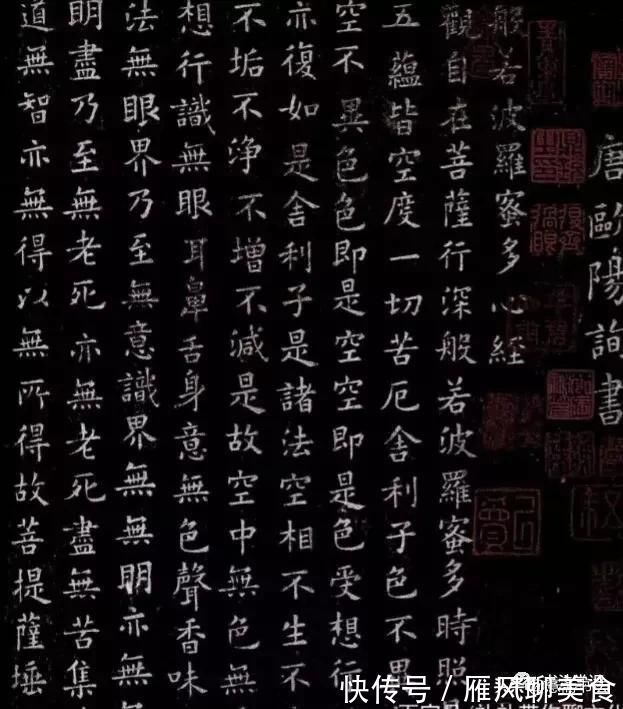 唐歐陽詢書
般若波羅蜜多心經
觀自在菩薩行深般若波羅蜜多時照
五蘊皆空度一切苦厄舍利子色不異
空不異色色即是空空即是色受想行
亦復如是舍利子是諸法空相不生不
不垢不淨不增不減是故空中無色無
想行識無眼耳鼻舌身意無色聲香味
法無眼界乃至無意識界無無明亦無
明盡乃至無老死亦無老死盡無苦集
道無智亦無得以無所得故菩提薩埵
快传号／雁风聊美食